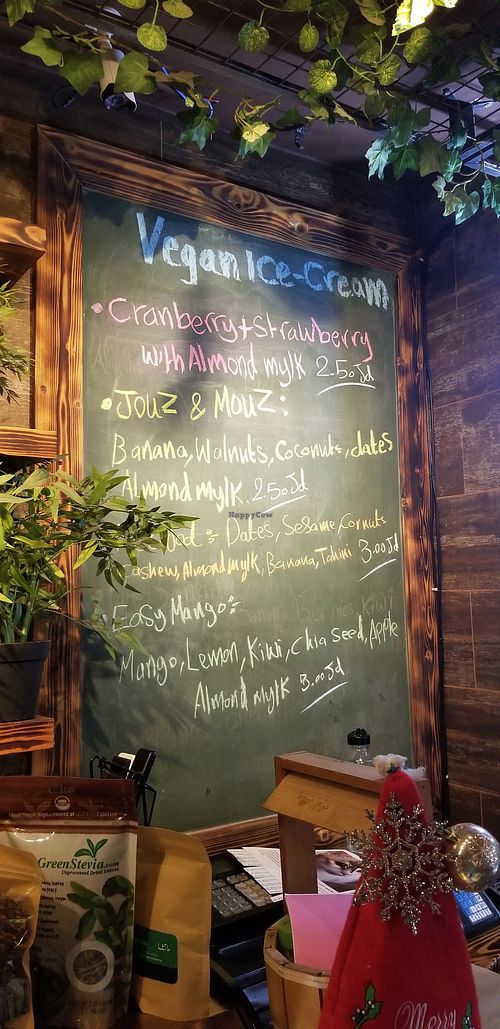 Vegan Ice-Cream
• Cranberry+Strawberry
with Almond mylk 2.50Jd
• Jouz & Mouz:
Banana, Walnuts, Coconuts, dates
Almond mylk 2.50Jd
HappyCow
Dates, Sesame,
Cashew, Almond mylk, Banana, Tahini 3.00Jd
• Easy Mango:
Mango, Lemon, Kiwi, chia seed, Apple
Almond mylk 3.00Jd
GreenStevia.com
Unprocessed Dried Leaves
Merry